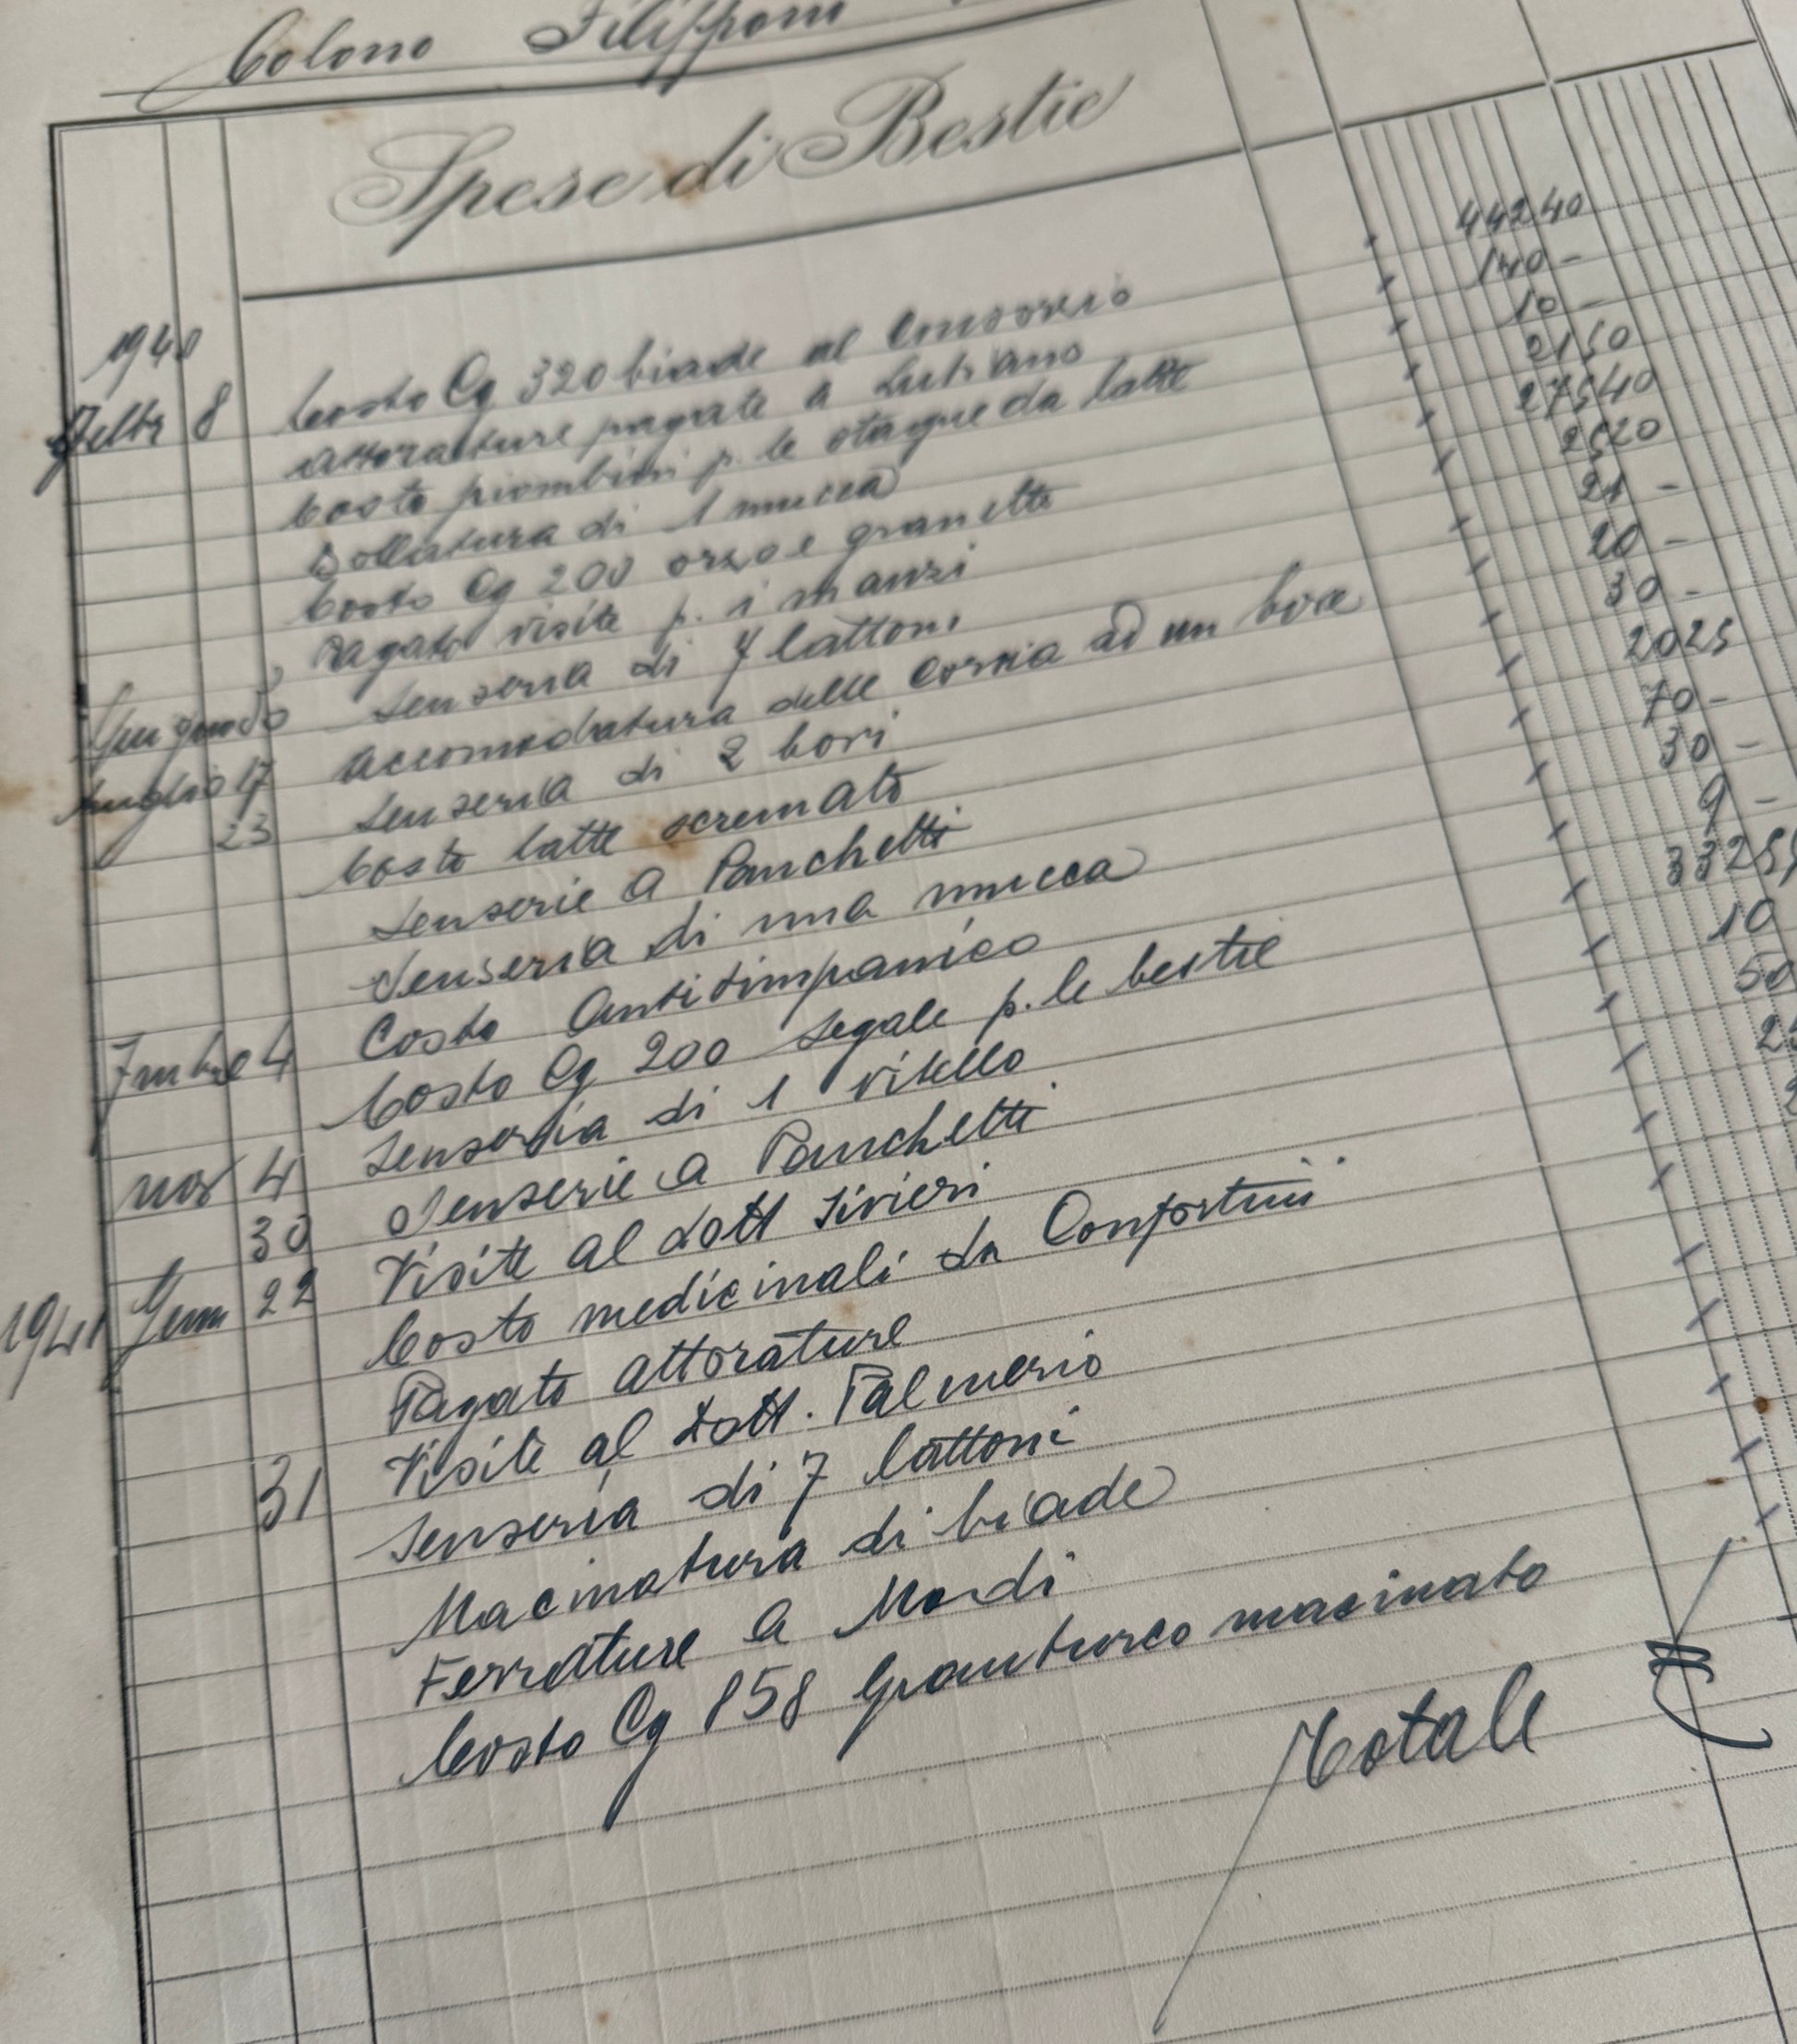 Colono Filipponi
Spese di Bestie
1940
Febbr 8 Costo Cg 320 biade al Consorzio " 442 40
attorature pagate a Lutiano " 140 -
Costo piombini p. le stagne da latte " 10 -
Bollatura di 1 mucca " 21 50
Costo Cg 200 orzo e granetto " 275 40
Pagato visite p. i manzi " 25 20
Senseria di 7 lattoni " 21 -
luglio 17 accomodatura delle corna ad un bove " 20 -
23 Senseria di 2 bovi " 30 -
Costo latte scremato " 20 25
Senserie a Panchetti " 70 -
Senseria di una mucca " 30 -
Costo Antitimpanico " 9 -
7mbre 4 Costo Cg 200 segale p. le bestie " 332 55
Senseria di 1 vitello " 10
nov 4 Senserie a Panchetti " 50
30 Visite al Dott Sivieri "
1941 Genn 22 Costo medicinali da Confortini "
Pagato attorature "
Visite al Dott. Palmerio "
31 Senseria di 7 lattoni "
Macinatura di biade "
Ferrature a Mordi "
Costo Cg 858 Granturco macinato "
Totale £